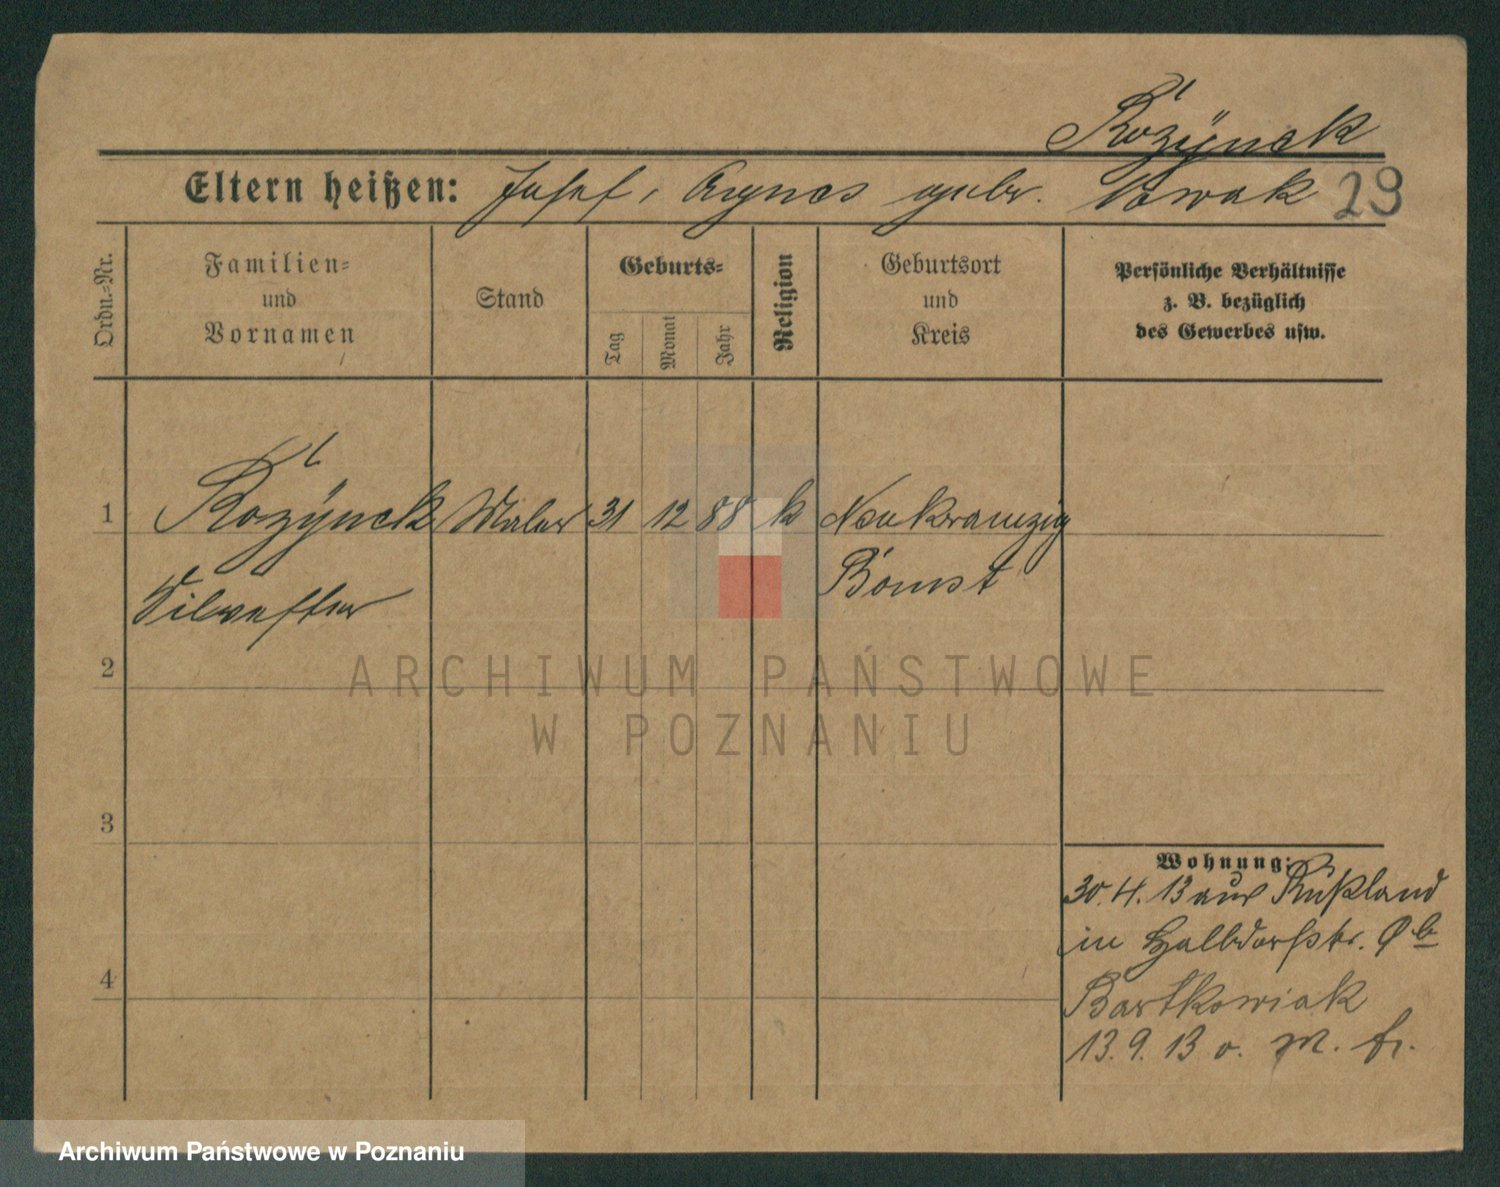 Rożÿnek
Eltern heißen: Josef, Agnes gebr. Nowak 29
Ordn.-Nr.
Familien-
und
Vornamen
Stand
Geburts-
Tag
Monat
Jahr
Religion
Geburtsort
und
Kreis
Persönliche Verhältnisse
z. B. bezüglich
des Gewerbes usw.
1 Rożÿnek Maler 31 12 88 k Neukramzig
Silvester Bomst
2
3
4
Wohnung:
30.4.13 aus Rußland
in Halbdorfstr.
Bartkowiak
13.9.13 v.
ARCHIWUM PAŃSTWOWE
W POZNANIU
Archiwum Państwowe w Poznaniu